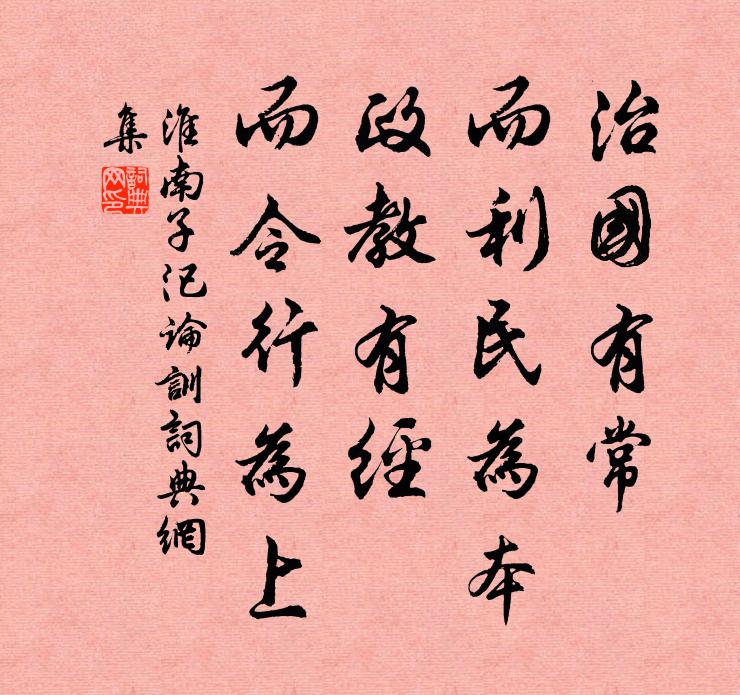 治國有常
而利民為本
政教有經
而令行為上
淮南子氾論訓詞典網
集
詞典
网印